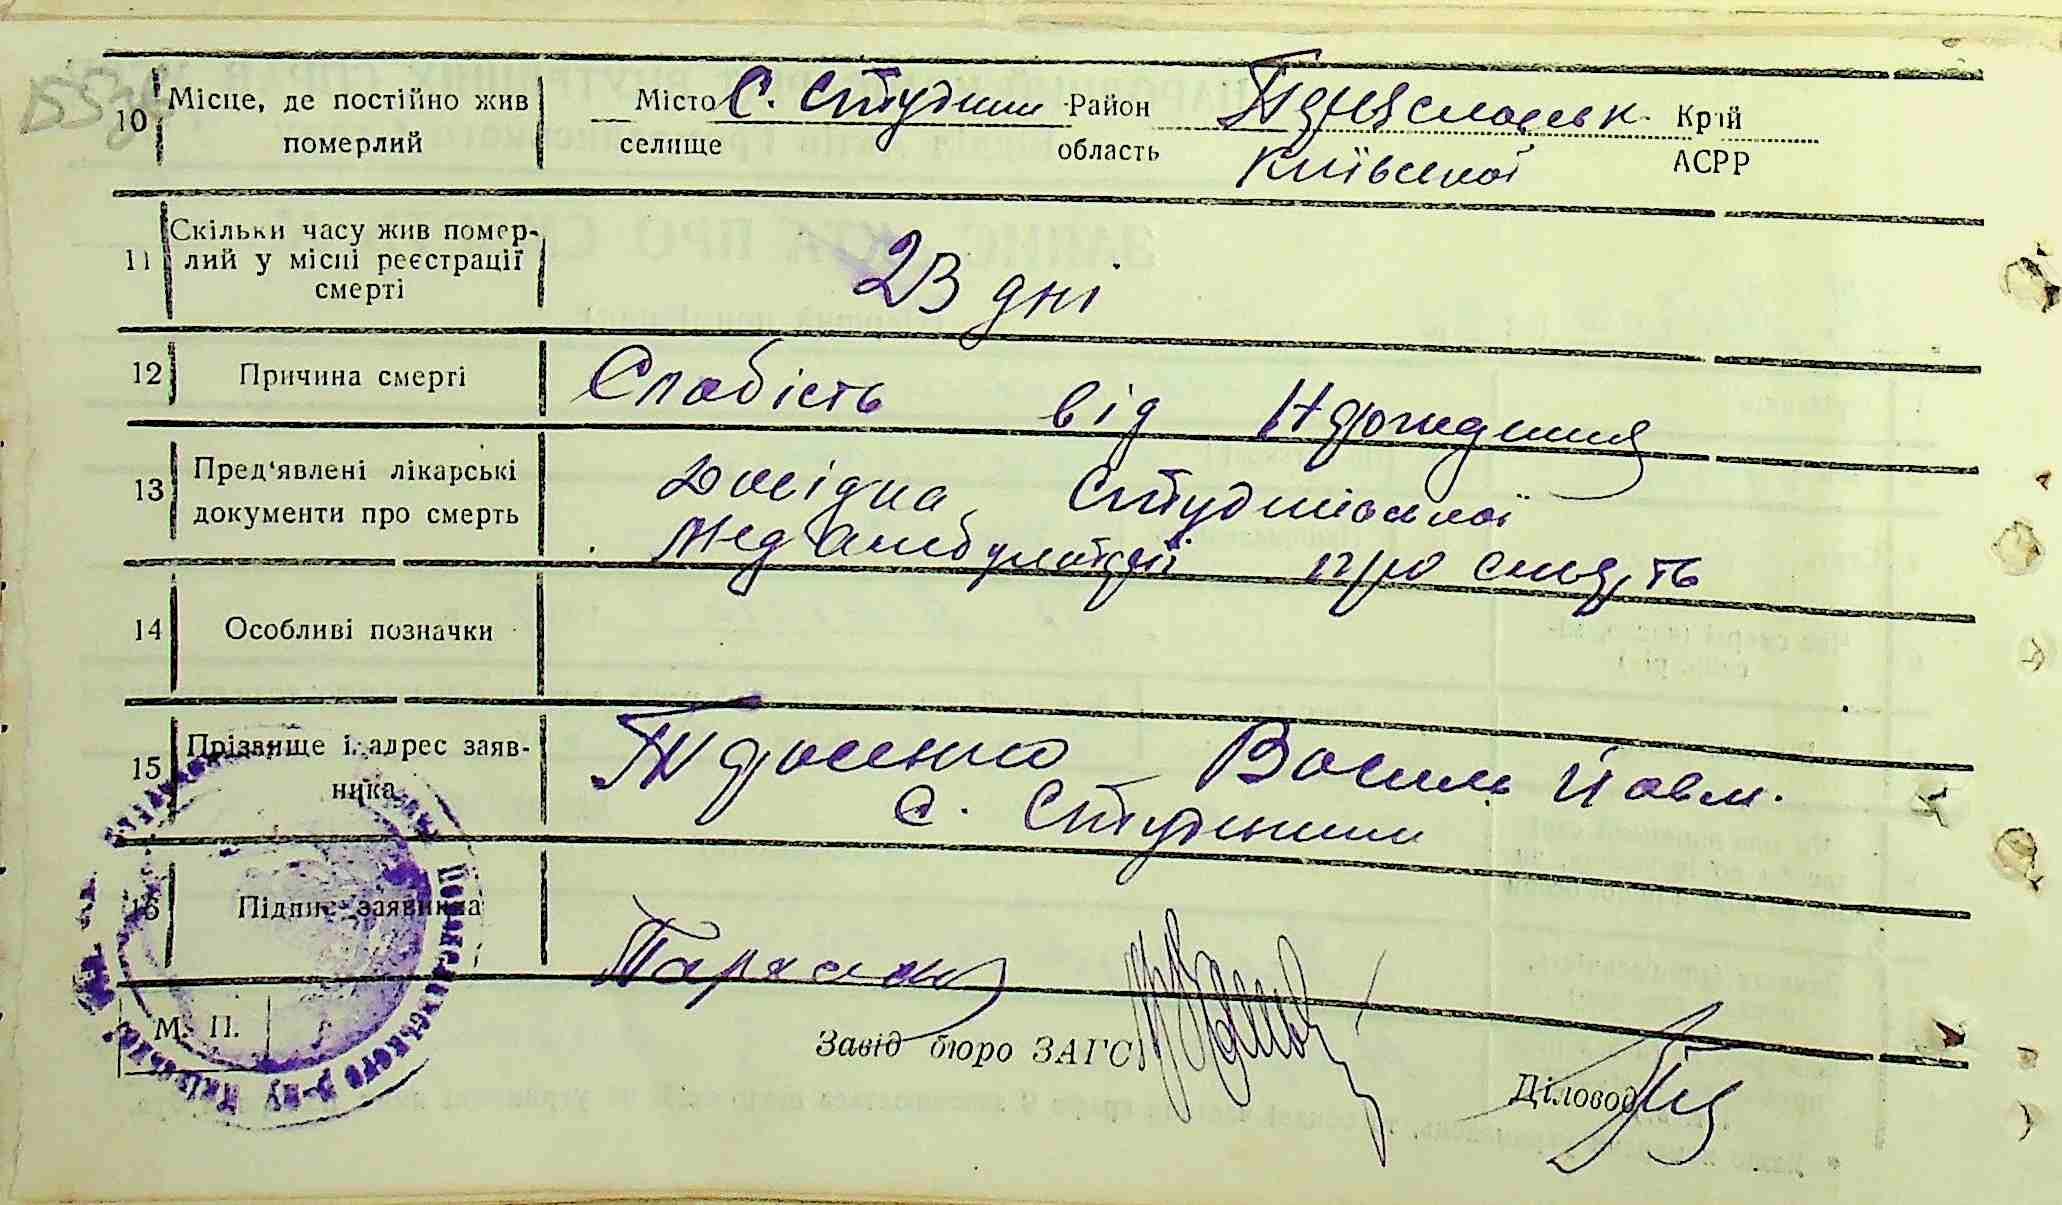 10 Місце, де постійно жив померлий
Місто С. Студники Район Переяславськ. Край
селище область Київської АСРР
11 Скільки часу жив помер-
лий у місці реєстрації
смерті
23 дні
12 Причина смерті
Слабість від Нарождения
13 Пред'явлені лікарські
документи про смерть
Довідка Студниківської
Мед Амбулаторії про смерть
14 Особливі позначки
15 Прізвище і адрес заяв-
ника
Василь Йовм.
С. Студники
16 Підпис заявника
М. П.
Завід бюро ЗАГС
Діловод